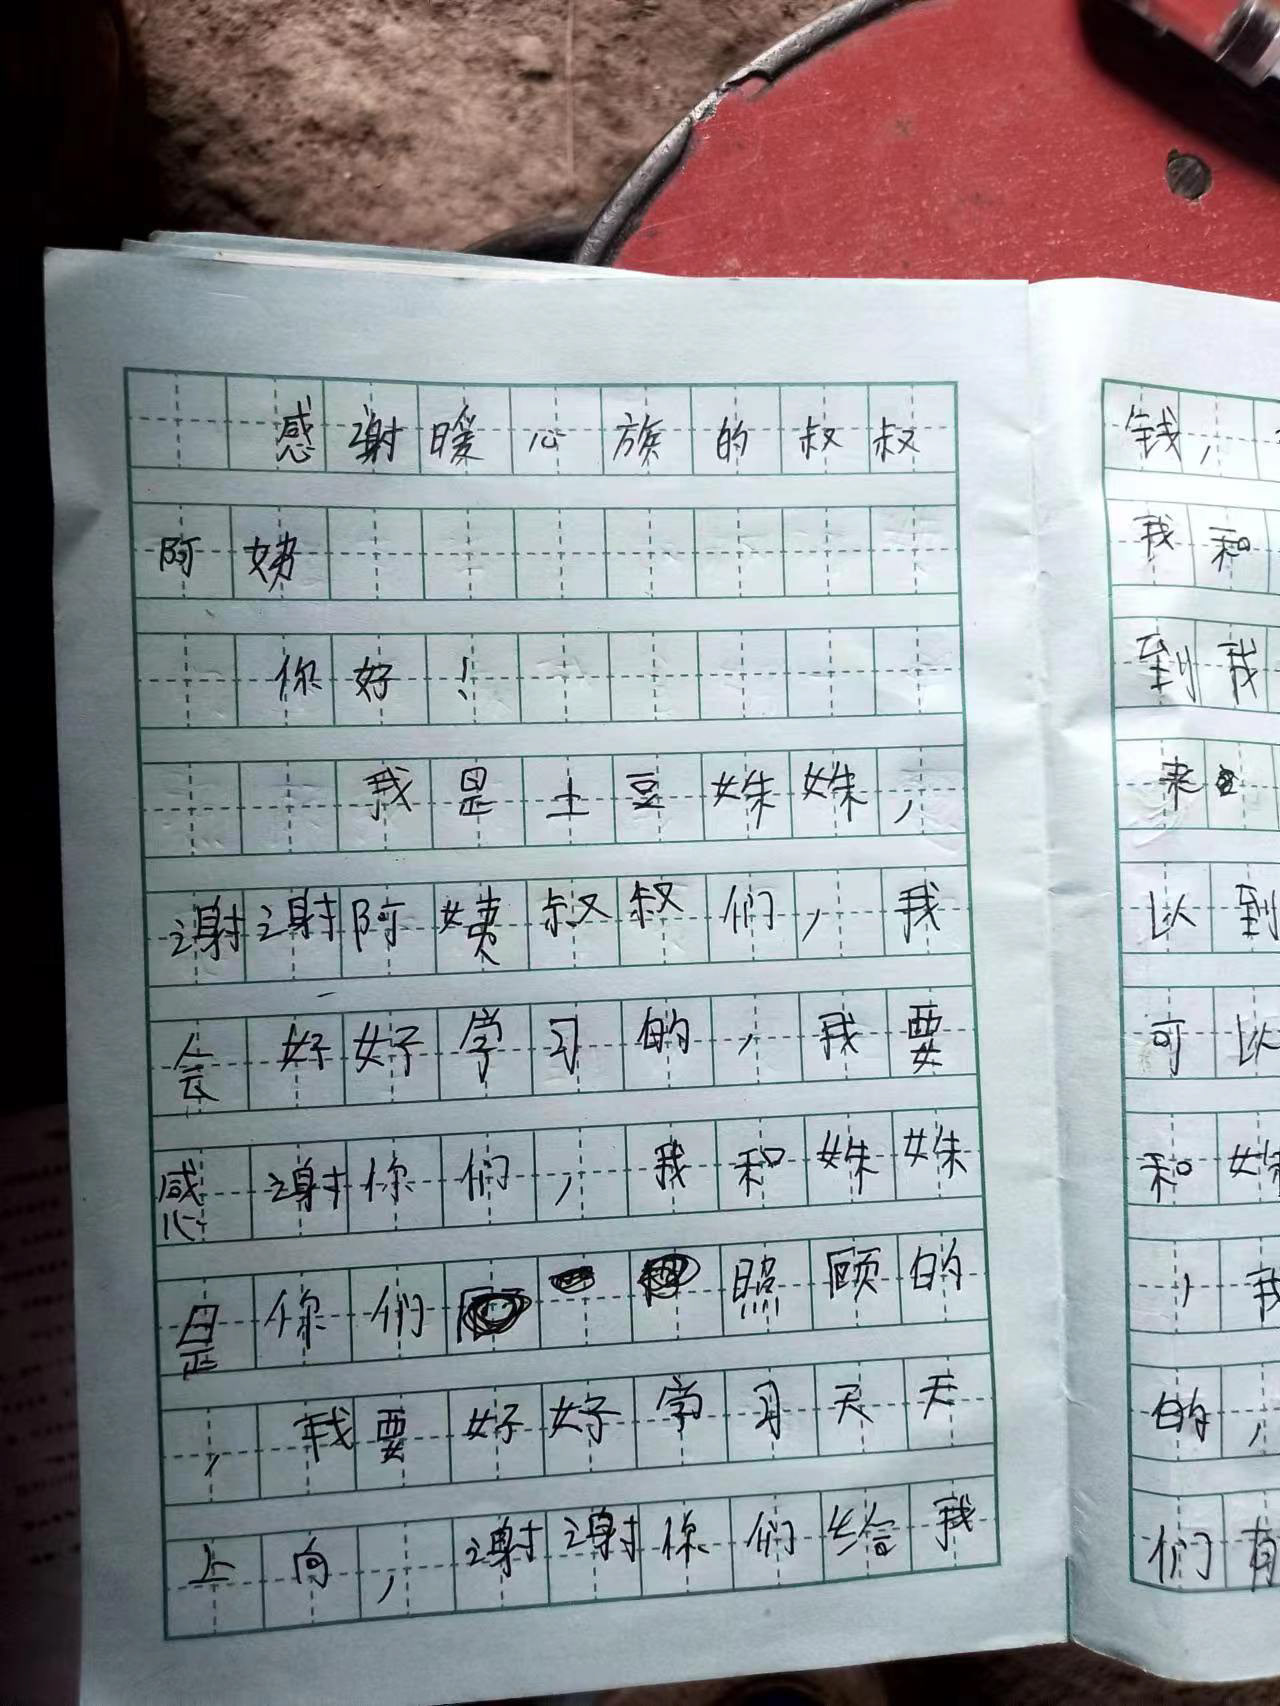 感谢暖心族的叔叔
阿姨
你好!
我是土豆妹妹,
谢谢阿姨叔叔们,我
会好好学习的,我要
感谢你们,我和妹妹
是你们照顾的
,我要好好学习天天
上向,谢谢你们给我
钱,
我和
到我
来
以到
可以
和妹
,我
的,
们有